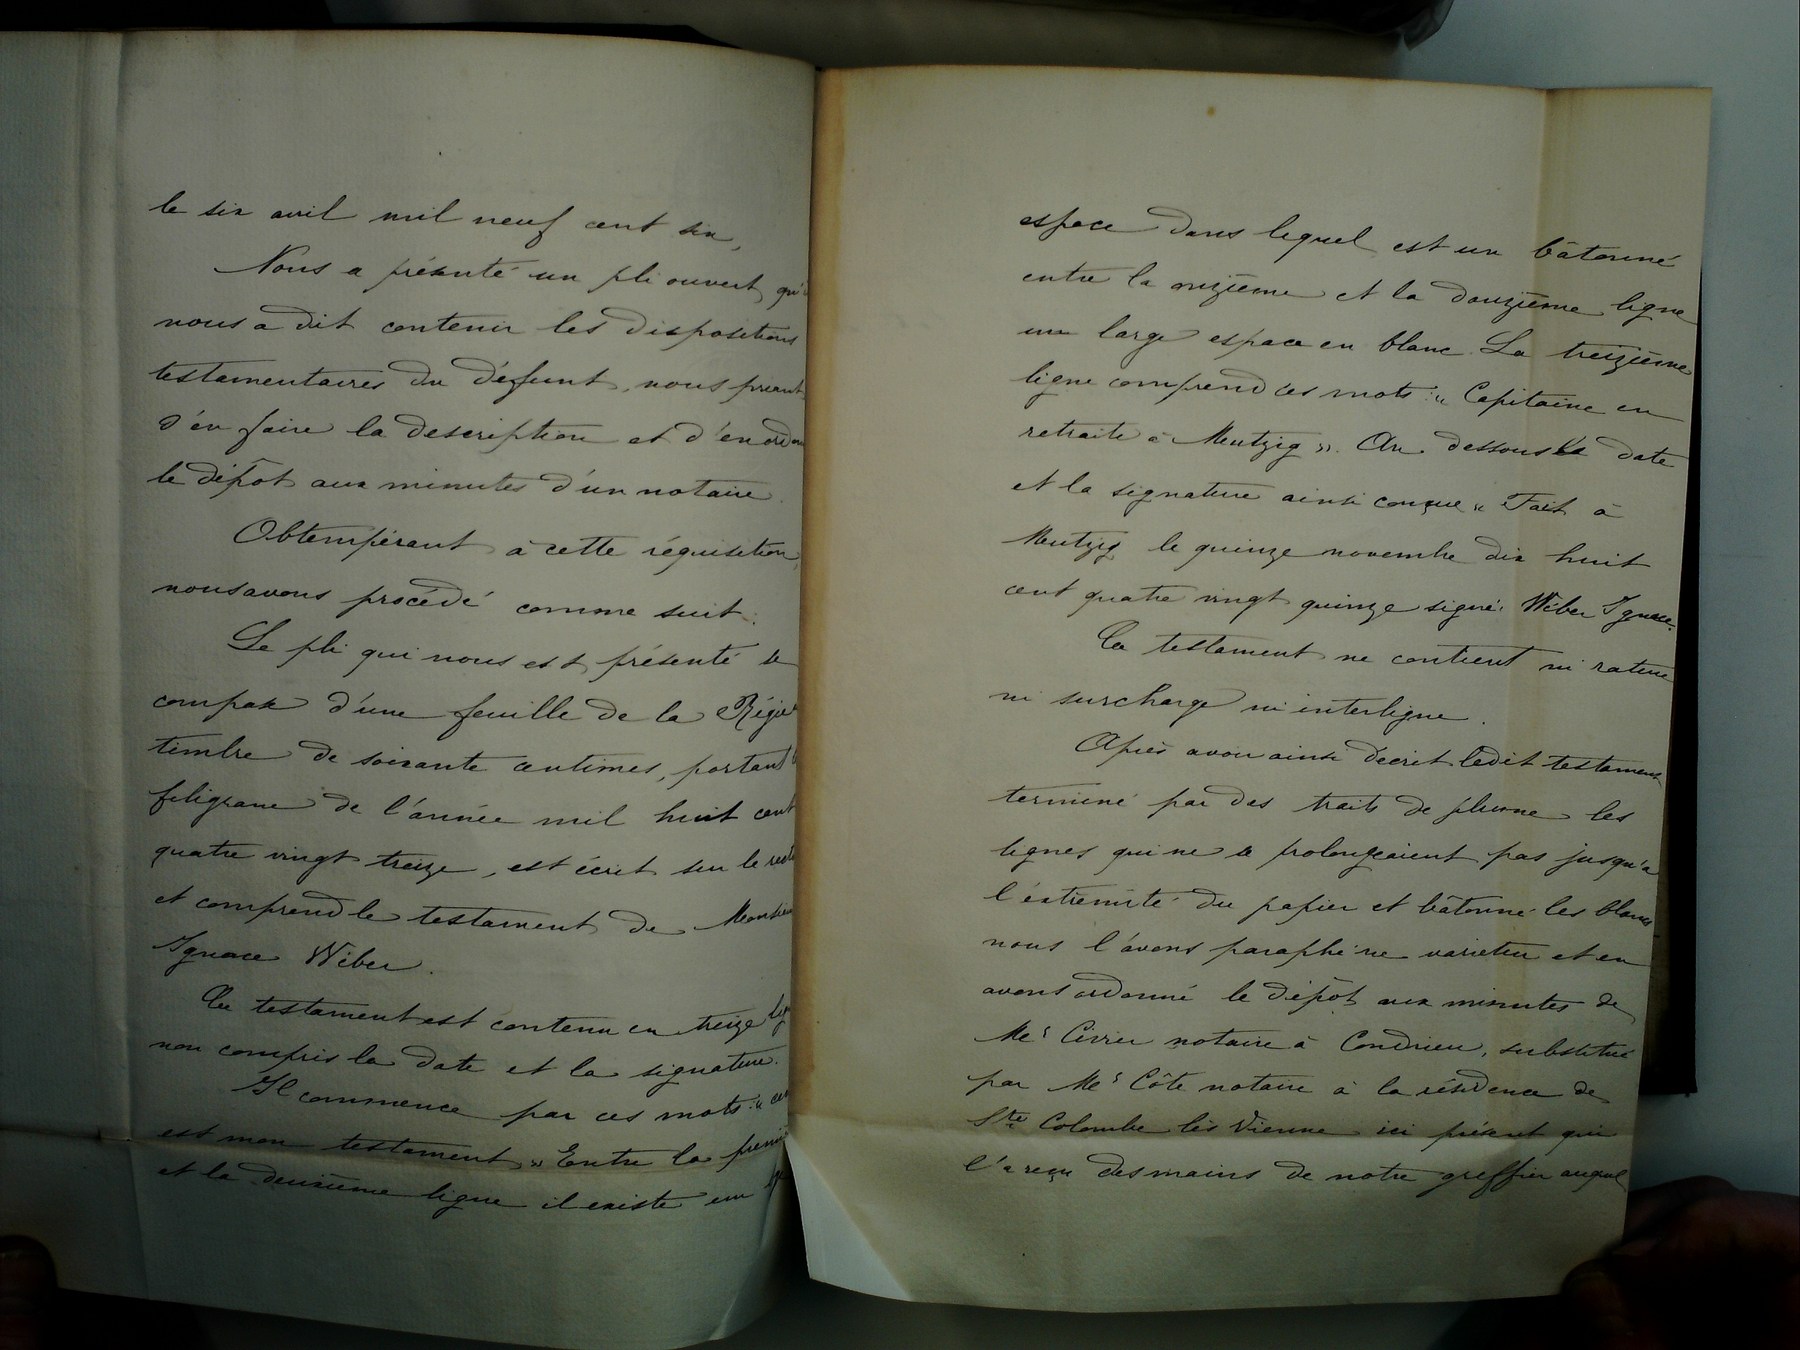 le six avril mil neuf cent six,
Nous a présenté un pli ouvert, qu'
nous a dit contenir les dispositions
testamentaires du défunt, nous priant
d'en faire la description et d'en ordon
le dépôt aux minutes d'un notaire.
Obtempérant à cette réquisition,
nous avons procédé comme suit:
Le pli qui nous est présenté se
compose d'une feuille de la Régie
timbre de soixante centimes, portant
filigrane de l'année mil huit cent
quatre vingt treize, est écrit sur le recto
et comprend le testament de Monsieur
Ignace Wéber.
Ce testament est contenu en treize lig
non compris la date et la signature.
Il commence par ces mots: "
est mon testament" Entre la premi
et la deuxième ligne il existe un
espace dans lequel est un bâtonné
entre la onzième et la douzième ligne
un large espace en blanc. La treizième
ligne comprend ces mots: "Capitaine en
retraite à Mutzig". Au dessous la date
et la signature ainsi conçue "Fait à
Mutzig le quinze novembre dix huit
cent quatre vingt quinze signé: Wéber Ignace.
Ce testament ne contient ni rature
ni surcharge ni interligne.
Après avoir ainsi décrit ledit testament
terminé par des traits de plume les
lignes qui ne se prolongeaient pas jusqu'à
l'extrémité du papier et bâtonné les blancs
nous l'avons paraphé ne varietur et en
avons ordonné le dépôt aux minutes de
Me Civier notaire à Condrieu, substitué
par Me Côte notaire à la résidence de
Ste Colombe lès Vienne ici présent qui
l'a reçu des mains de notre greffier auquel